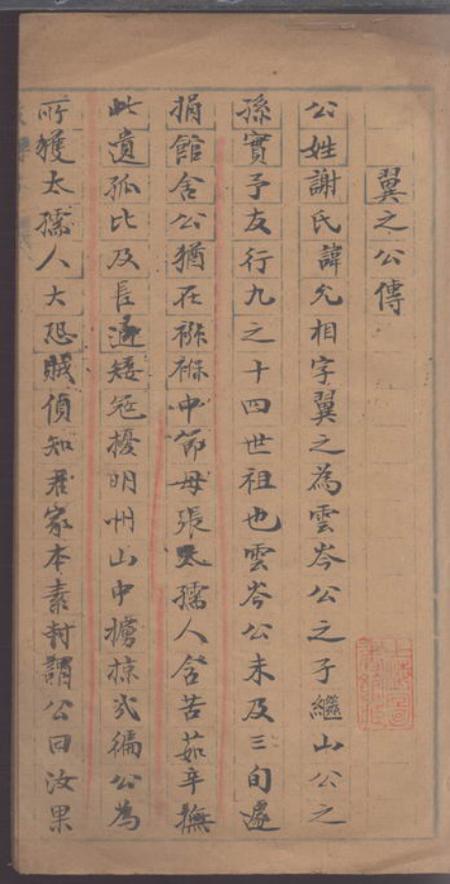 翼之公傳
公姓謝氏諱允相字翼之為雲岑公之子繼山公之
孫實予友行九之十四世祖也雲岑公未及三旬遽
捐館舍公猶在襁褓中節母張太孺人含苦茹辛撫
此遺孤比及長適矮寇擾明州山中擄掠弍徧公為
所獲太孺人大恐賊偵知君家本素封謂公曰汝果